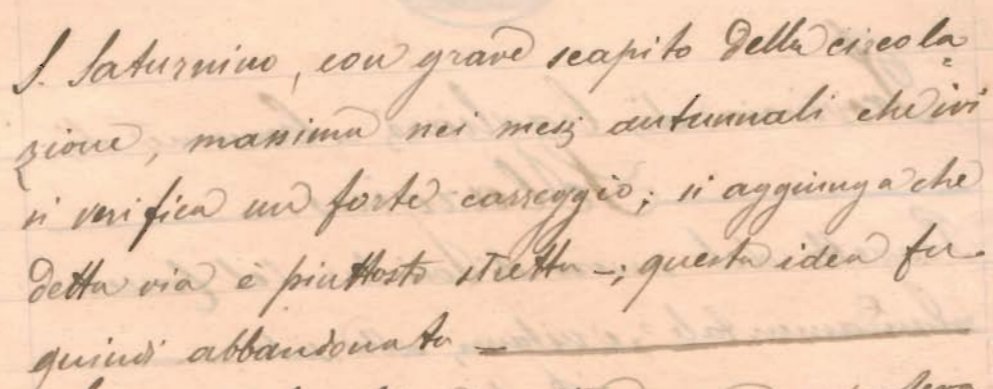 S. Saturnino, con grave scapito della circola=
zione, massima nei mesi autunnali che ivi
si verifica un forte carreggio; si aggiunga che
detta via è piuttosto stretta -; questa idea fu
quindi abbandonata —